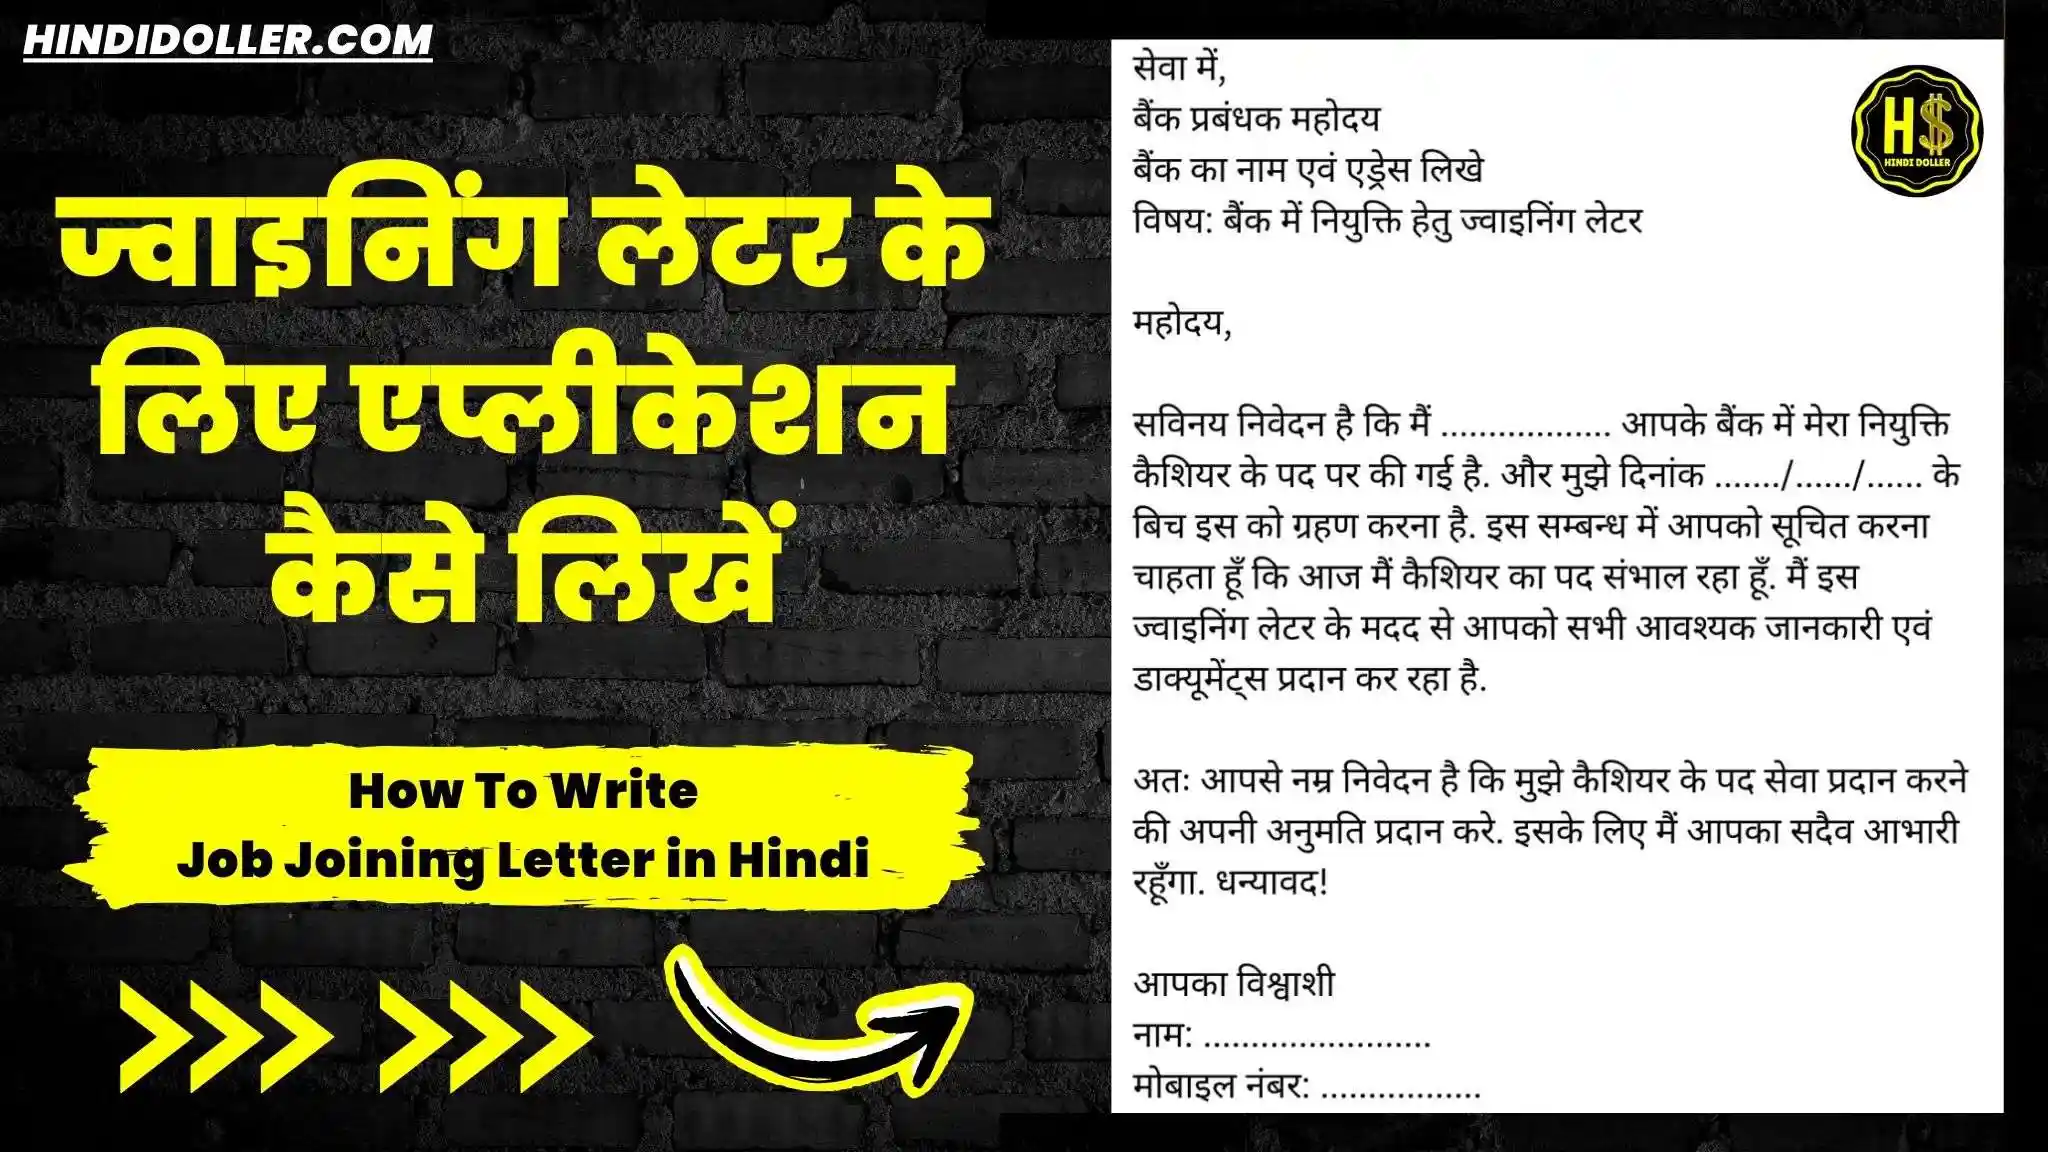 HINDIDOLLER.COM
ज्वाइनिंग लेटर के
लिए एप्लीकेशन
कैसे लिखें
How To Write
Job Joining Letter in Hindi
सेवा में,
बैंक प्रबंधक महोदय
बैंक का नाम एवं एड्रेस लिखे
विषय: बैंक में नियुक्ति हेतु ज्वाइनिंग लेटर
महोदय,
सविनय निवेदन है कि मैं .................. आपके बैंक में मेरा नियुक्ति
कैशियर के पद पर की गई है. और मुझे दिनांक ......./....../...... के
बिच इस को ग्रहण करना है. इस सम्बन्ध में आपको सूचित करना
चाहता हूँ कि आज मैं कैशियर का पद संभाल रहा हूँ. मैं इस
ज्वाइनिंग लेटर के मदद से आपको सभी आवश्यक जानकारी एवं
डाक्यूमेंट्स प्रदान कर रहा है.
अतः आपसे नम्र निवेदन है कि मुझे कैशियर के पद सेवा प्रदान करने
की अपनी अनुमति प्रदान करे. इसके लिए मैं आपका सदैव आभारी
रहूँगा. धन्यावद!
आपका विश्वाशी
नाम: ........................
मोबाइल नंबर: .................
H$
HINDI DOLLER